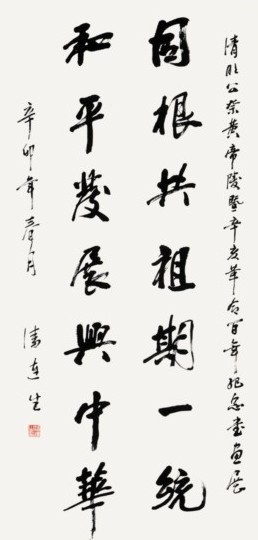 清明公祭黄帝陵暨辛亥革命百年纪念书画展
同根共祖期一统
和平發展興中華
辛卯年春月
连生